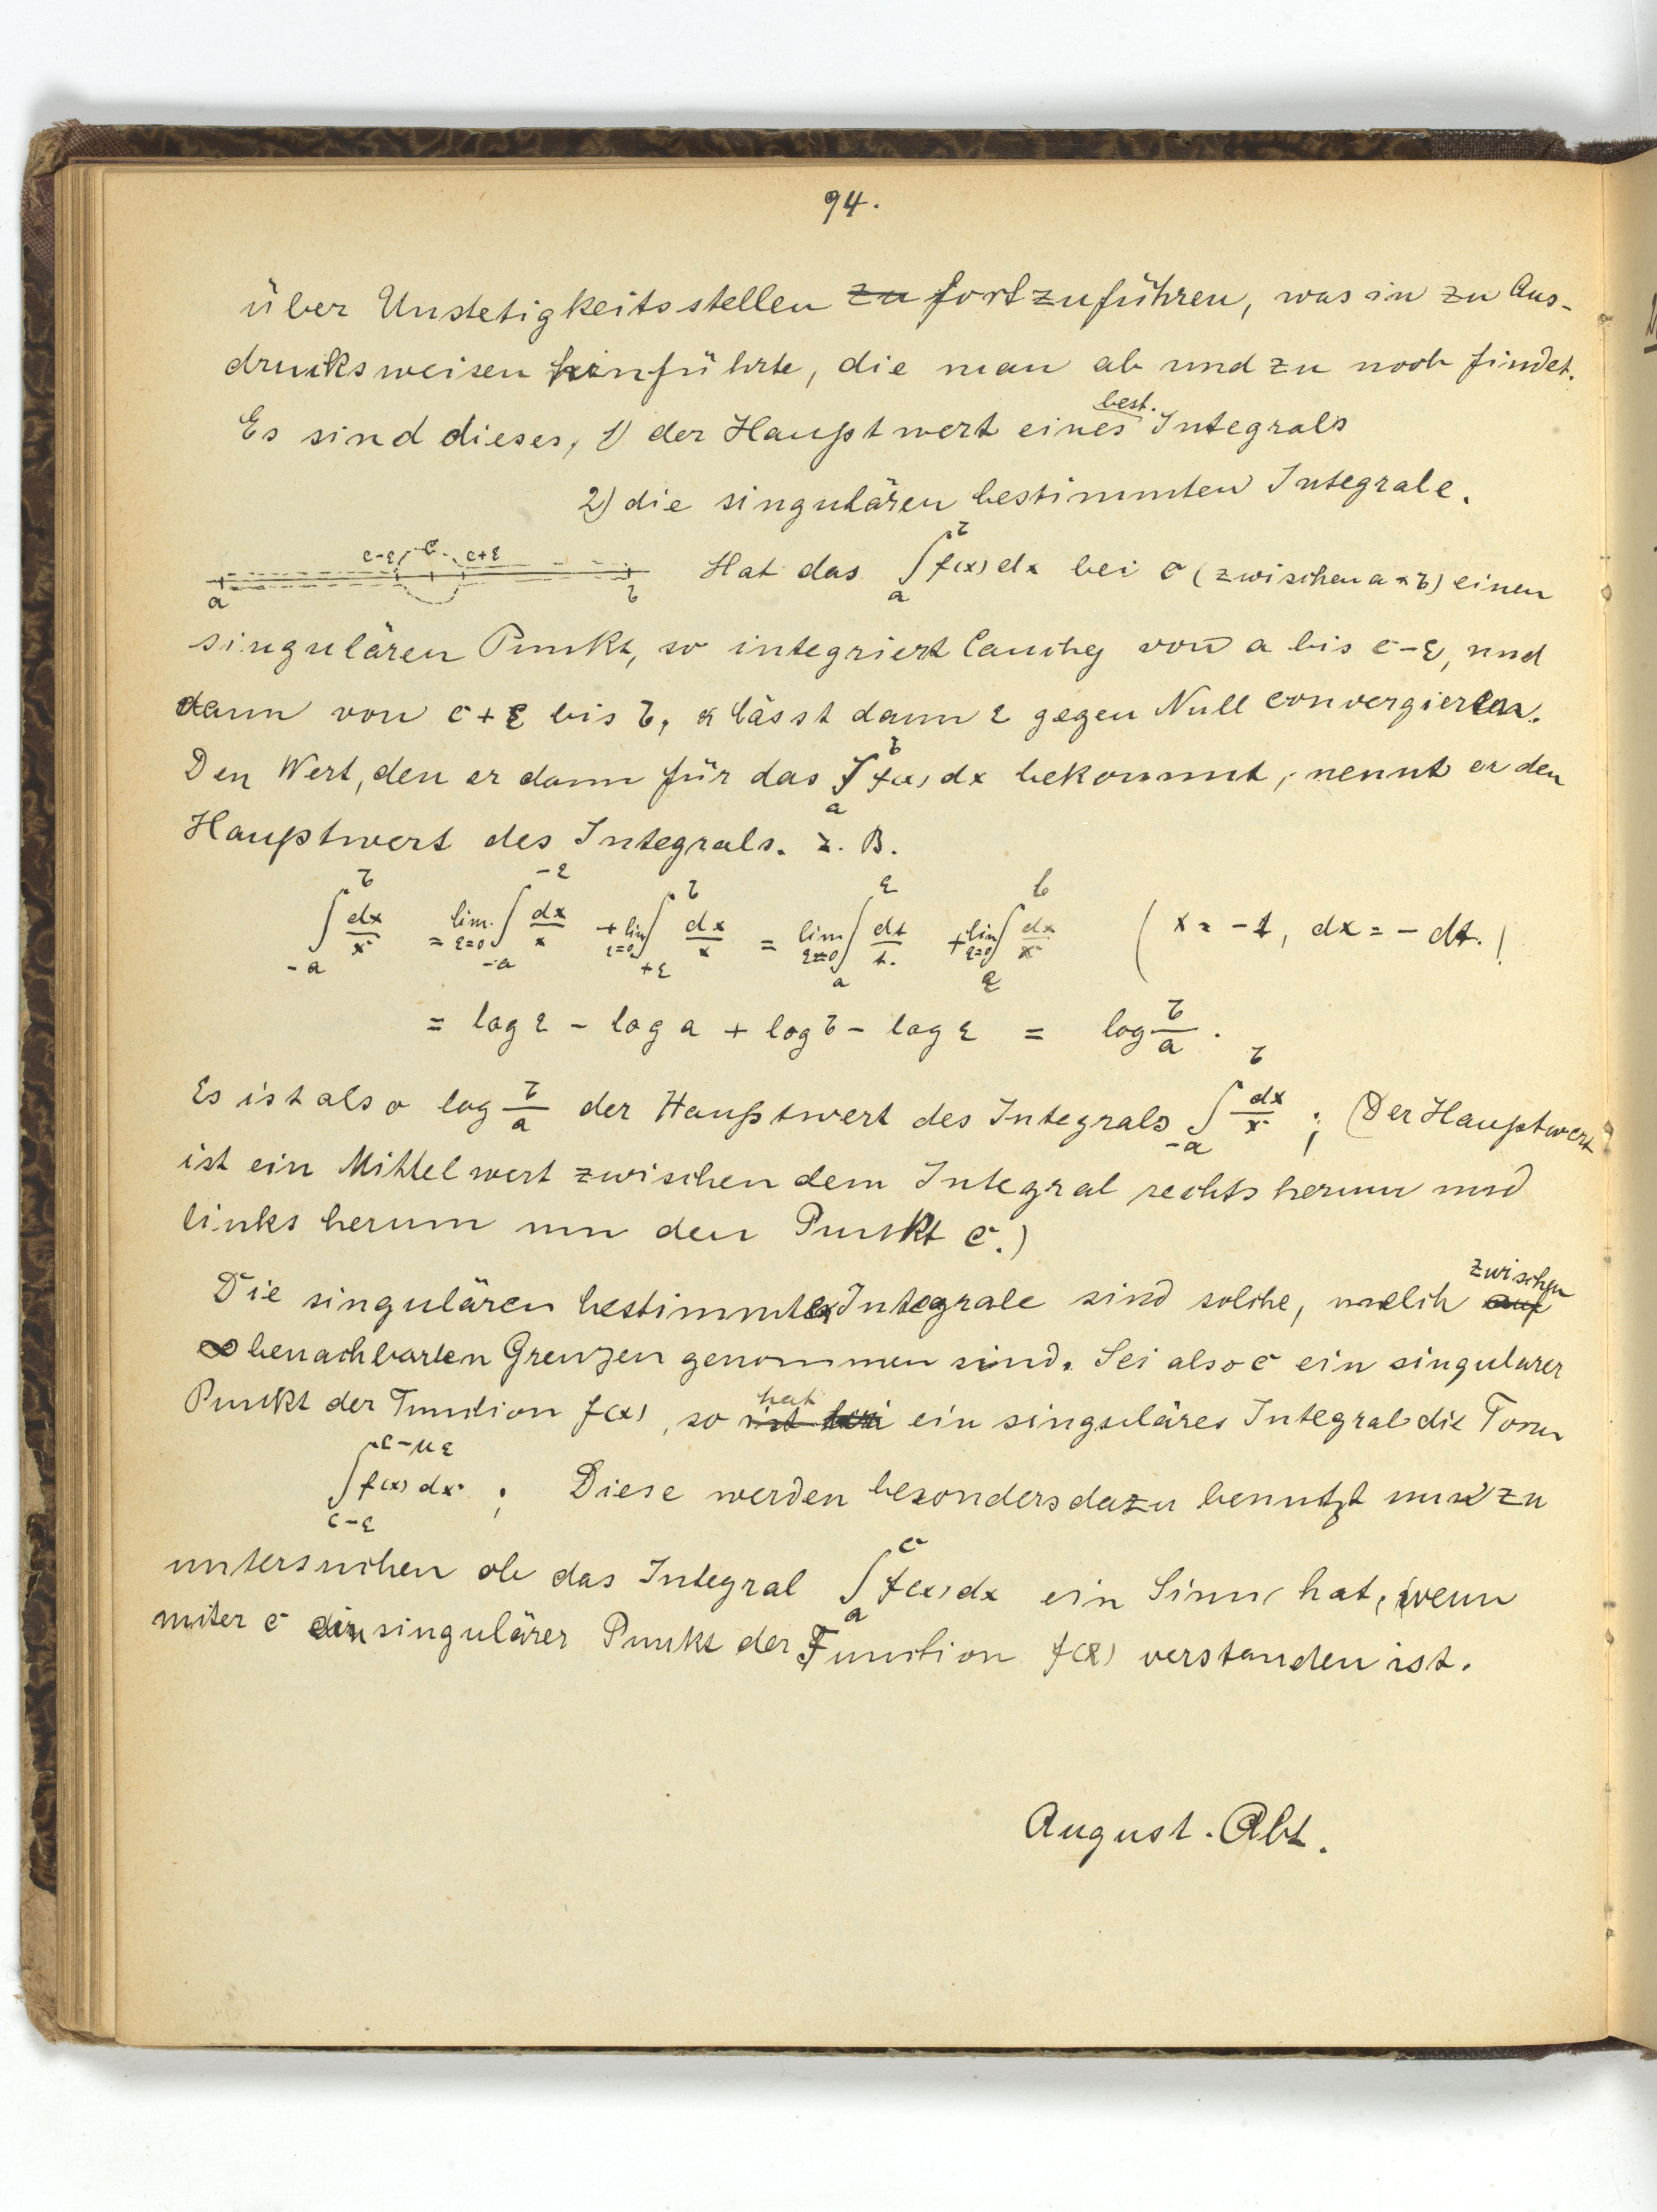 94.
über Unstetigkeitsstellen zu fortzuführen, was in zu Aus-
drucksweisen hinführte, die man ab und zu noch findet.
best.
Es sind dieses, 1) der Hauptwert eines Integrals
2) die singulären bestimmten Integrale.
c-ε c c+ε
a b
Hat das ∫_a^b f(x) dx bei c (zwischen a & b) einen
singulären Punkt, so integriert Cauchy von a bis c-ε, und
dann von c+ε bis b, & lässt dann ε gegen Null convergieren.
Den Wert, den er dann für das ∫_a^b f(x) dx bekommt, nennt er den
Hauptwert des Integrals. z. B.
∫_{-a}^b dx/x = lim._{ε=0} ∫_{-a}^{-ε} dx/x + lim_{ε=0} ∫_{+ε}^b dx/x = lim_{ε=0} ∫_a^ε dt/t. + lim_{ε=0} ∫_ε^b dx/x ( x = -t, dx = - dt. )
= log ε - log a + log b - log ε = log b/a .
Es ist also log b/a der Hauptwert des Integrals ∫_{-a}^b dx/x ; (Der Hauptwert
ist ein Mittelwert zwischen dem Integral rechts herum und
links herum um den Punkt c.)
Die singulären bestimmten Integrale sind solche, welch auf zwischen
∞ benachbarten Grenzen genommen sind. Sei also c ein singulärer
Punkt der Function f(x), so ist hat ein singuläres Integral die Form
∫_{c-ε}^{c-με} f(x) dx ; Diese werden besonders dazu benutzt um zu
untersuchen ob das Integral ∫_a^c f(x) dx ein Sinn hat, wenn
unter c ein singulärer Punkt der Function f(x) verstanden ist.
August. Abt.